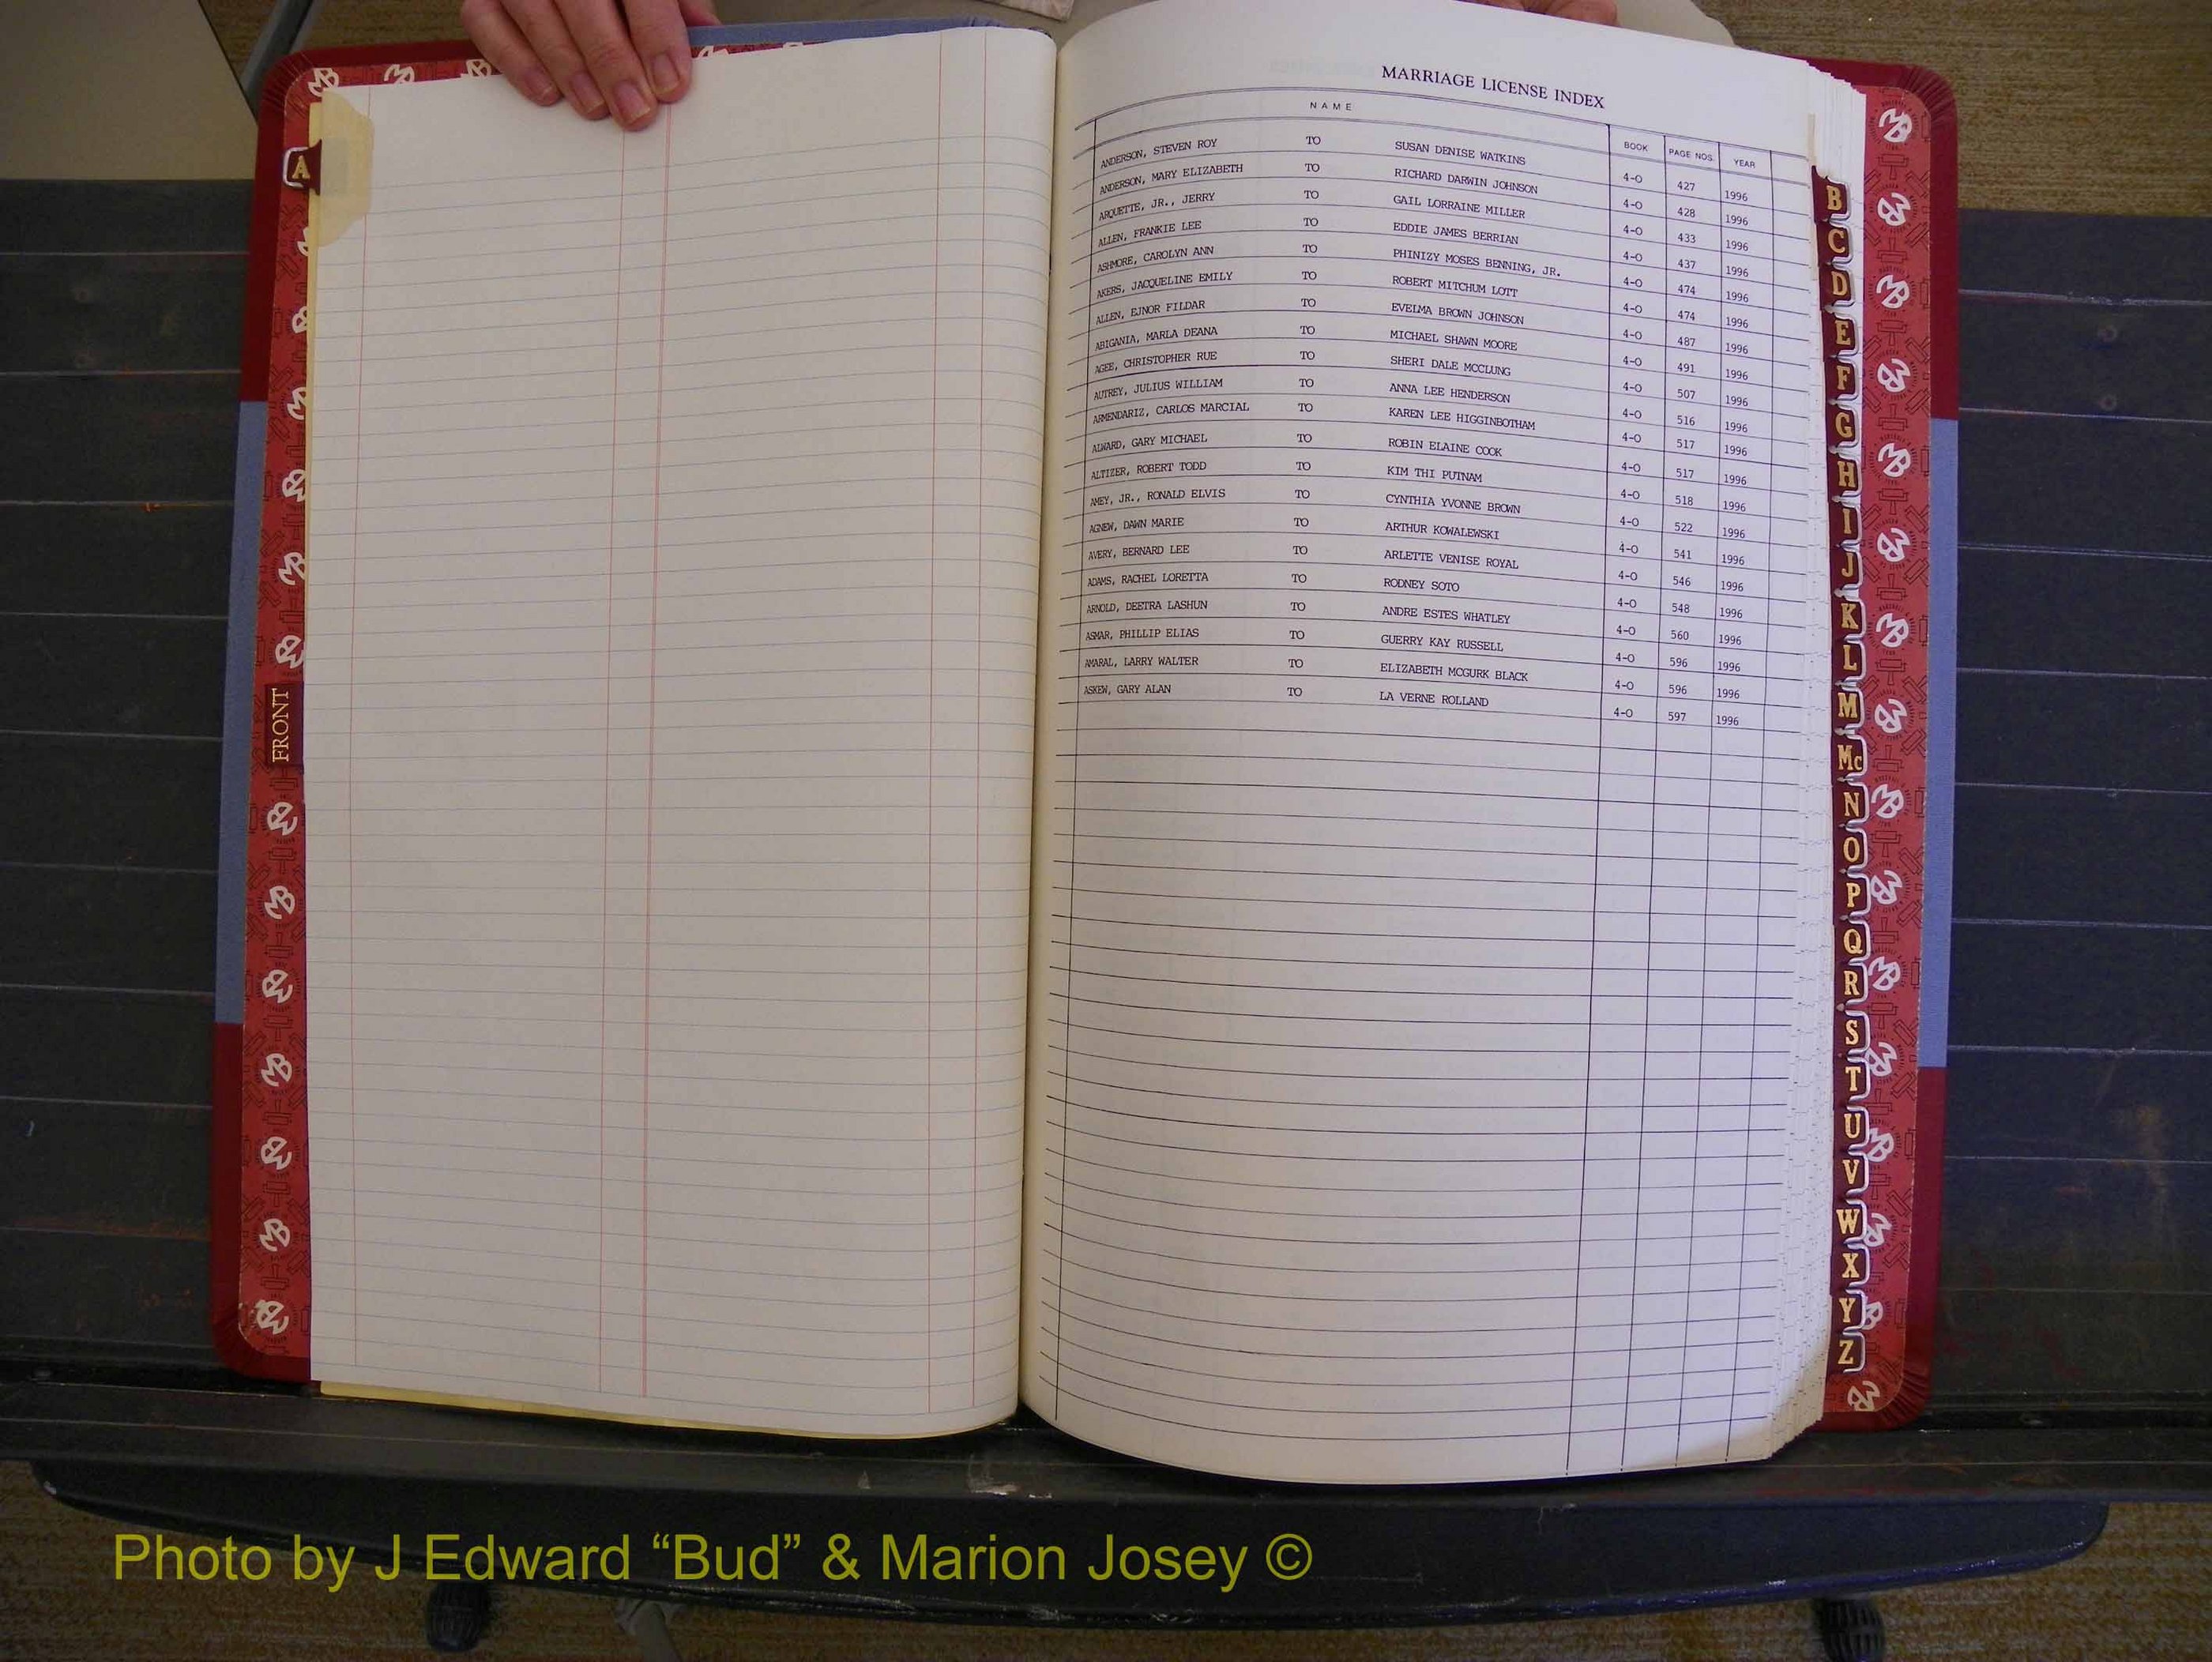 MARRIAGE LICENSE INDEX
NAME BOOK PAGE NOS. YEAR
ANDERSON, STEVEN ROY TO SUSAN DENISE WATKINS 4-O 427 1996
ANDERSON, MARY ELIZABETH TO RICHARD DARWIN JOHNSON 4-O 428 1996
ARQUETTE, JR., JERRY TO GAIL LORRAINE MILLER 4-O 433 1996
ALLEN, FRANKIE LEE TO EDDIE JAMES BERRIAN 4-O 437 1996
ASHMORE, CAROLYN ANN TO PHINIZY MOSES BENNING, JR. 4-O 474 1996
AKERS, JACQUELINE EMILY TO ROBERT MITCHUM LOTT 4-O 474 1996
ALLEN, EJNOR FILDAR TO EVELMA BROWN JOHNSON 4-O 487 1996
ABIGANIA, MARLA DEANA TO MICHAEL SHAWN MOORE 4-O 491 1996
AGEE, CHRISTOPHER RUE TO SHERI DALE MCCLUNG 4-O 507 1996
AUTREY, JULIUS WILLIAM TO ANNA LEE HENDERSON 4-O 516 1996
ARMENDARIZ, CARLOS MARCIAL TO KAREN LEE HIGGINBOTHAM 4-O 517 1996
ALWARD, GARY MICHAEL TO ROBIN ELAINE COOK 4-O 517 1996
ALTIZER, ROBERT TODD TO KIM THI PUTNAM 4-O 518 1996
AMEY, JR., RONALD ELVIS TO CYNTHIA YVONNE BROWN 4-O 522 1996
AGNEW, DAWN MARIE TO ARTHUR KOWALEWSKI 4-O 541 1996
AVERY, BERNARD LEE TO ARLETTE VENISE ROYAL 4-O 546 1996
ADAMS, RACHEL LORETTA TO RODNEY SOTO 4-O 548 1996
ARNOLD, DEETRA LASHUN TO ANDRE ESTES WHATLEY 4-O 560 1996
ASMAR, PHILLIP ELIAS TO GUERRY KAY RUSSELL 4-O 596 1996
AMARAL, LARRY WALTER TO ELIZABETH MCGURK BLACK 4-O 596 1996
ASKEW, GARY ALAN TO LA VERNE ROLLAND 4-O 597 1996
A
FRONT
B
C
D
E
F
G
H
I
J
K
L
M
Mc
N
O
P
Q
R
S
T
U
V
W
X
Y
Z
Photo by J Edward “Bud” & Marion Josey ©